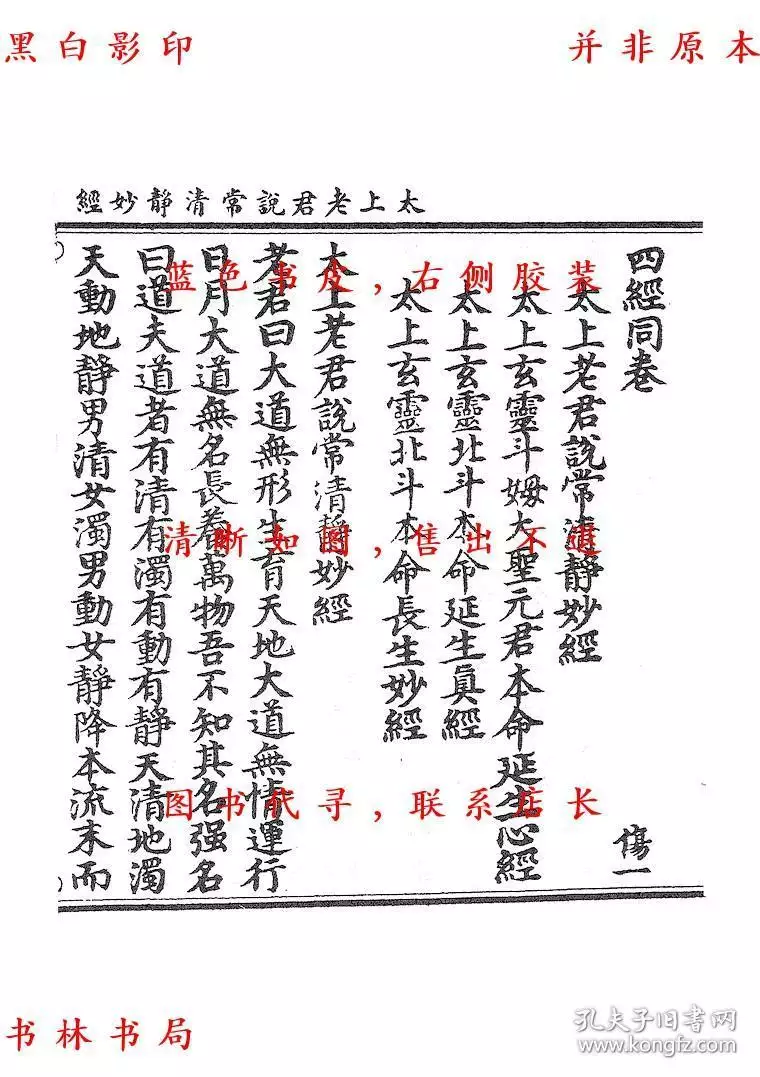 黑白影印
并非原本
太上老君說常清靜妙經
四經同卷
傷一
太上老君說常清靜妙經
太上玄靈斗姆大聖元君本命延生心經
太上玄靈北斗本命延生真經
太上玄靈北斗本命長生妙經
太上老君說常清靜妙經
老君曰大道無形生育天地大道無情運行
日月大道無名長養萬物吾不知其名强名
曰道夫道者有清有濁有動有靜天清地濁
天動地靜男清女濁男動女靜降本流末而
蓝色书皮,右侧胶装
清晰如图,售出不退
图书代寻,联系店长
书林书局
孔夫子旧书网
www.kongfz.com